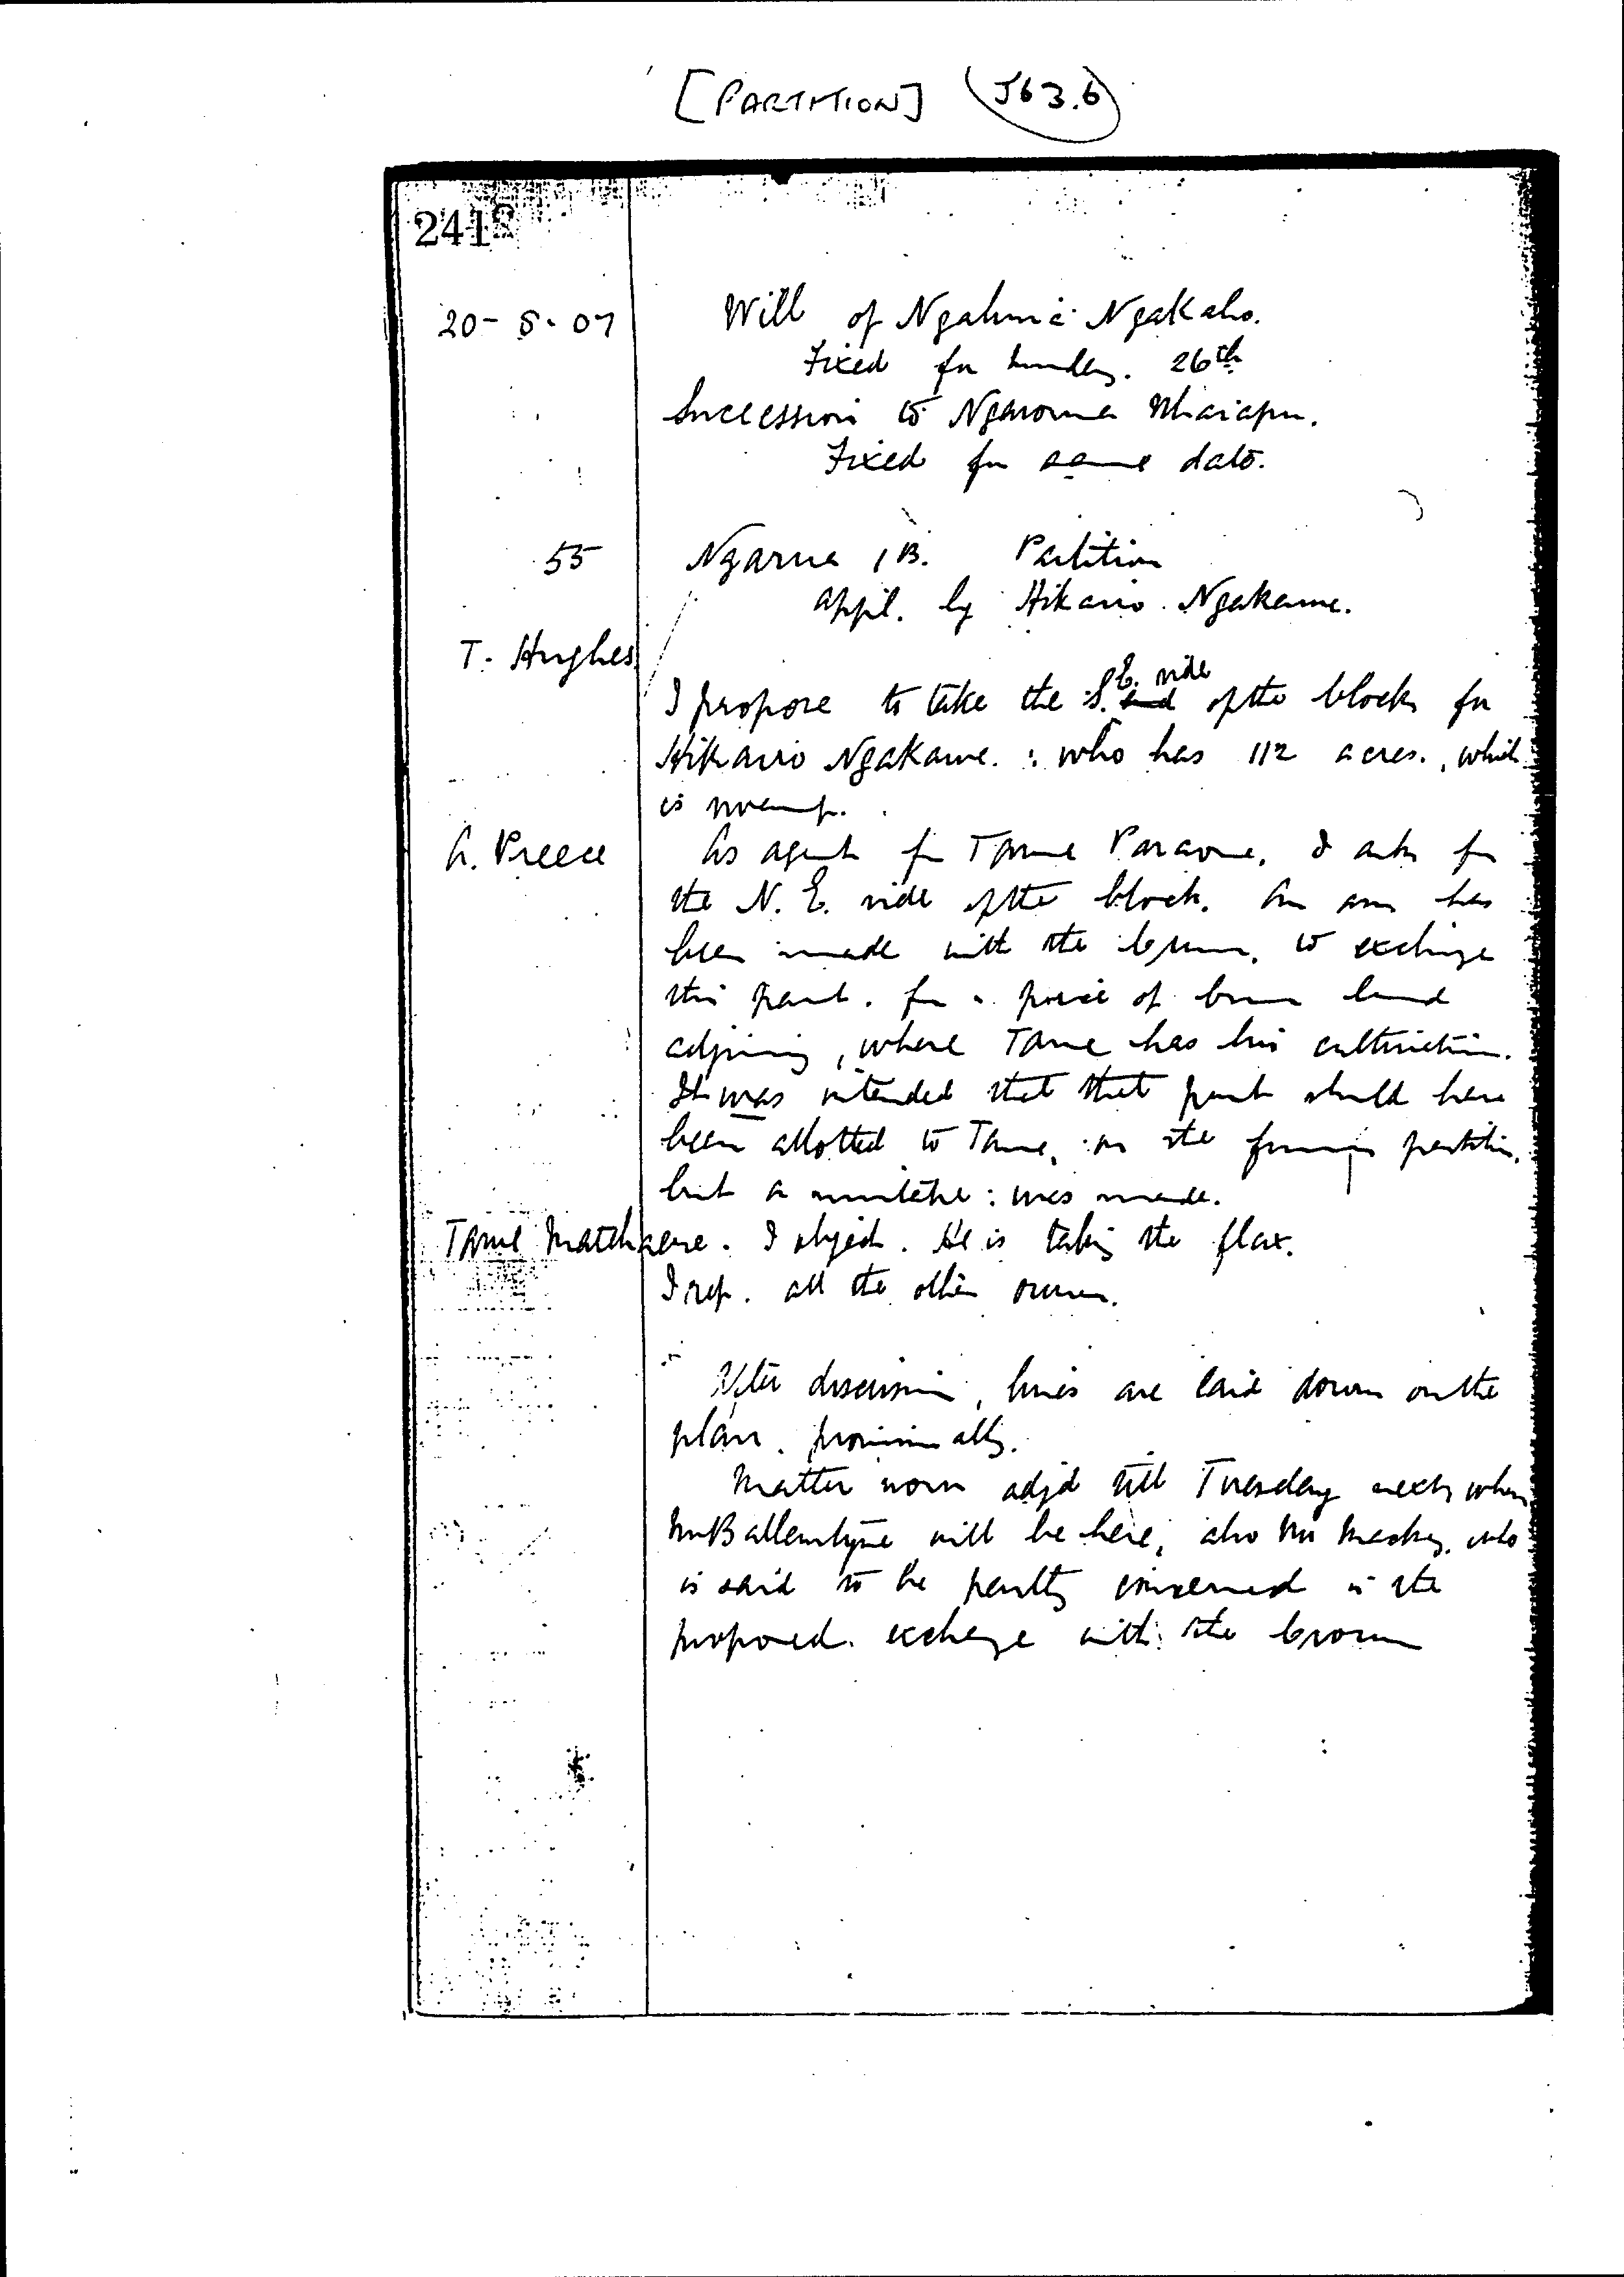 [PARTITION] J63.6
241
20-8-07 Will of Ngahuia Ngakaho.
Fixed for Monday. 26th
Succession to Ngaroma
Fixed for same date.
55 Ngarua 1B. Partition
appl. by Hikairo Ngakawe.
T. Hughes
I propose to take the S.E. side of the block for
Hikairo Ngakawe. who has 112 acres., which
is swamp.
A. Preece As agent for Tame Paraone, I ask for
the N. E. side of the block. An arr has
been made with the Crown, to exchange
this part. for a parcel of Crown land
adjoining, where Tame has his cultivation.
It was intended that that part should have
been allotted to Tame, on the former partition,
but a mistake was made.
Tame I object. He is taking the flax.
I rep. all the other owners.
After discussion, lines are laid down on the
plan. provisionally.
Matter now adjd till Tuesday next, when
Mr Ballantyne will be here, also Mr Mackay, who
is said to be partly concerned in the
proposed exchange with the Crown